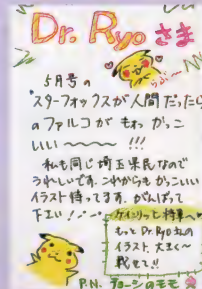 Dr. Ryoさま
らぶ〜
5月号の
"スターフォックスが人間だったら"
のファルコがもおかっこ
いい〜〜〜!!!
私も同じ埼玉県民なので
うれしいです。これからもかっこいい
イラスト待ってます。がんばって
下エい!
もっとDr.Ryoさんの
イラスト、大きく〜
載せて!!
P.N. チョーシのモモ